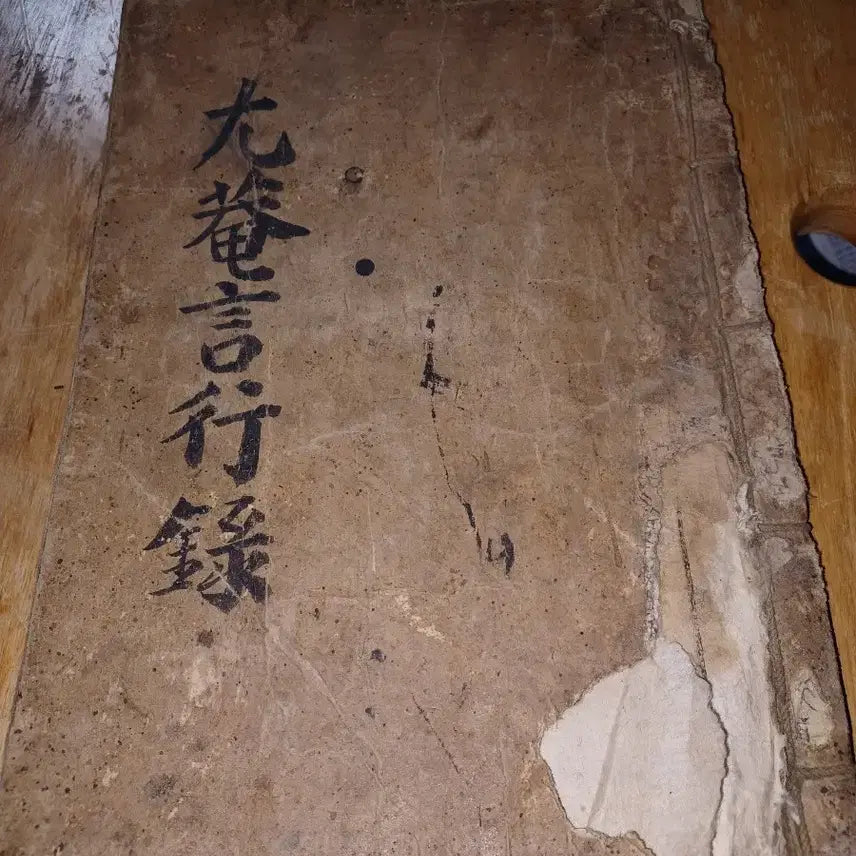 尤菴言行錄